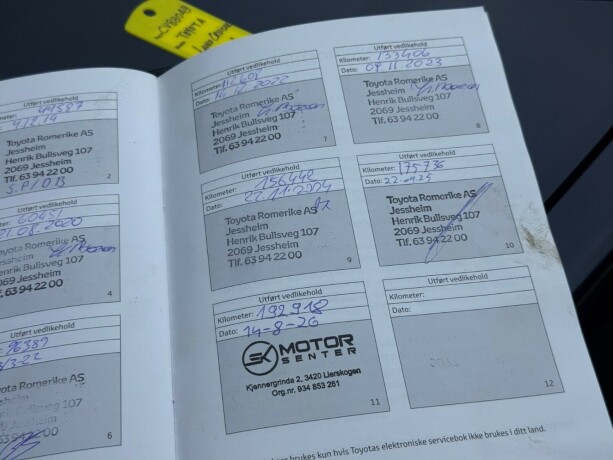 CV88043
TOYOTA
LAND CRUISER
Utført vedlikehold
4/2.19
Toyota Romerike AS
Jessheim
Henrik Bullsveg 107
2069 Jessheim
Tlf. 63 94 22 00
S.P/OB
2
Utført vedlikehold
60451
21.08.2020
Toyota Romerike AS
Jessheim
Henrik Bullsveg 107
2069 Jessheim
Tlf. 63 94 22 00
4
Utført vedlikehold
96387
/3-22
Toyota Romerike AS
Jessheim
Bullsveg 107
Jessheim
94 22 00
6
Utført vedlikehold
Kilometer:
Dato: 14.12.2022
Toyota Romerike AS
Jessheim
Henrik Bullsveg 107
2069 Jessheim
Tlf. 63 94 22 00
7
Utført vedlikehold
Kilometer: 133406
Dato: 09.11.2023
Toyota Romerike AS
Jessheim
Henrik Bullsveg 107
2069 Jessheim
Tlf. 63 94 22 00
8
Utført vedlikehold
Kilometer: 156448
Dato: 22.11.2024
Toyota Romerike AS
Jessheim
Henrik Bullsveg 107
2069 Jessheim
Tlf. 63 94 22 00
9
Utført vedlikehold
Kilometer: 175736
Dato: 22.09.25
Toyota Romerike AS
Jessheim
Henrik Bullsveg 107
2069 Jessheim
Tlf. 63 94 22 00
10
Utført vedlikehold
Kilometer: 192918
Dato: 14-8-26
EK MOTOR
SENTER
Kjennergrinda 2, 3420 Lierskogen
Org.nr. 934 853 261
11
Utført vedlikehold
Kilometer:
Dato:
12
brukes kun hvis Toyotas elektroniske servicebok ikke brukes i ditt land.